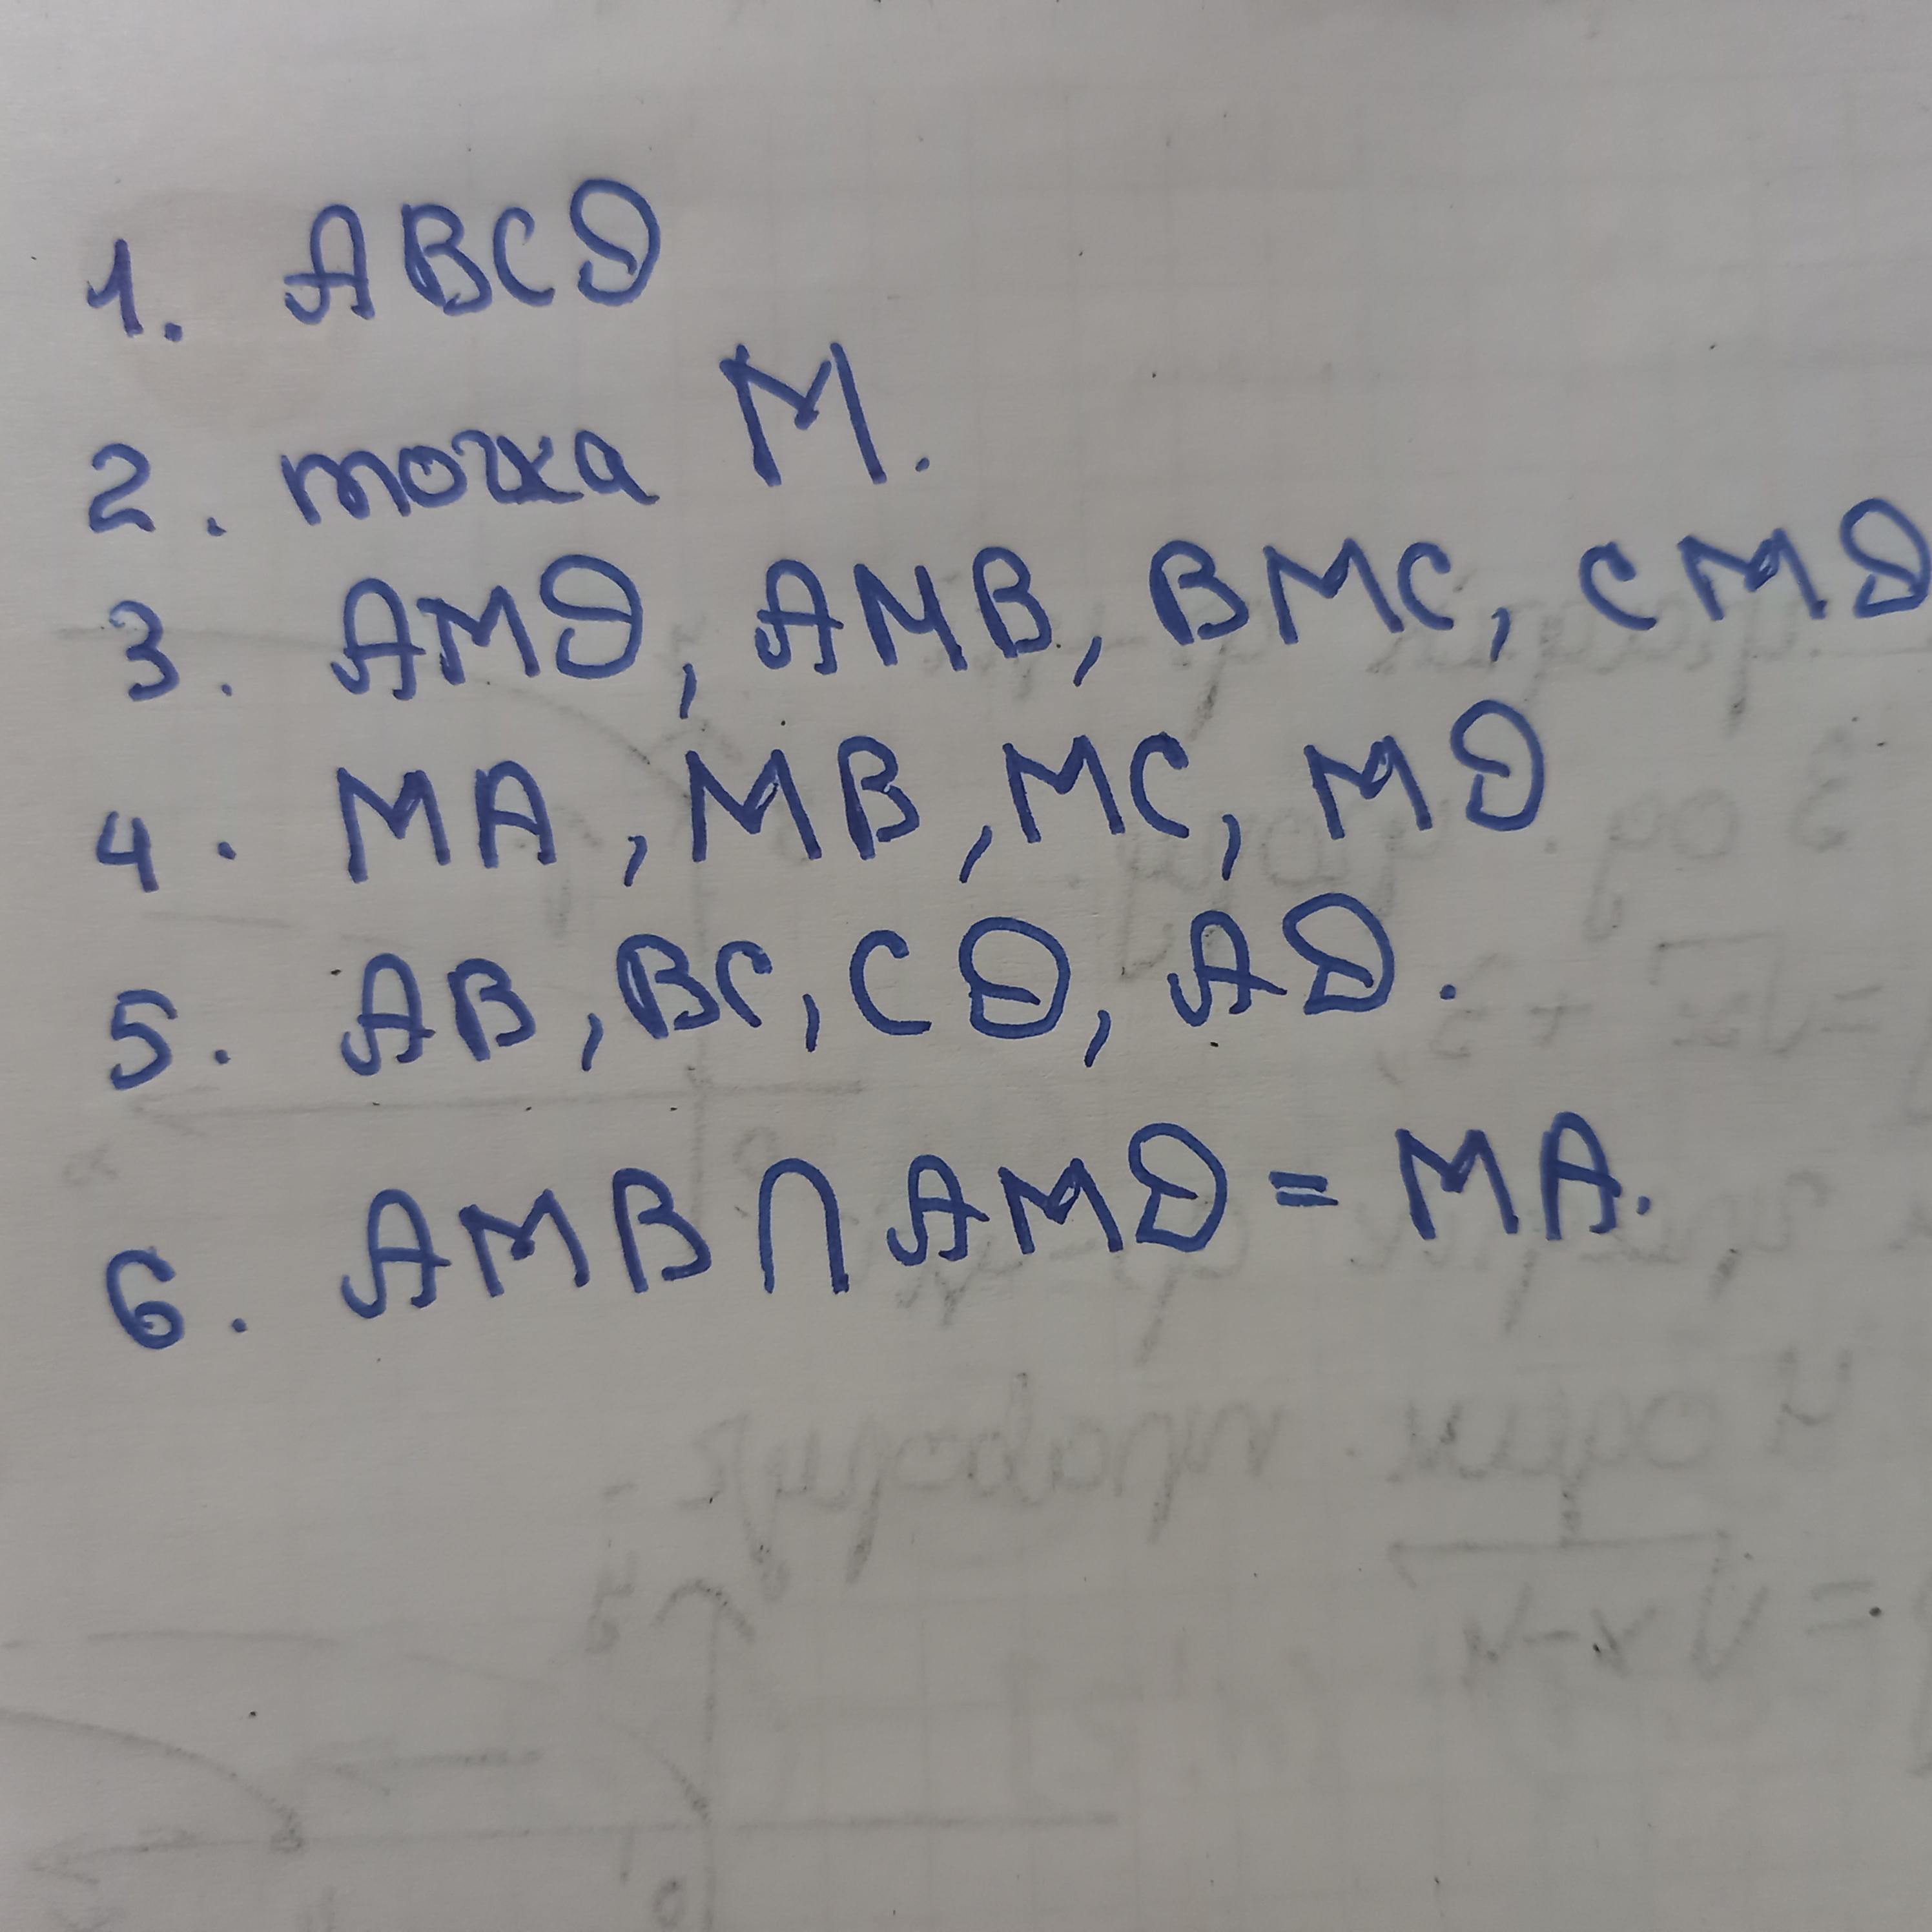 1. ABCD
2. точка M.
3. AMD, AMB, BMC, CMD
4. MA, MB, MC, MD
5. AB, BC, CD, AD.
6. AMB ∩ AMD = MA.